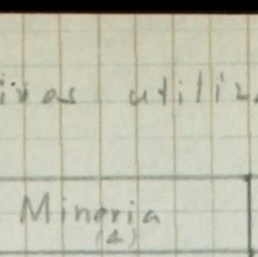 ivos utiliz
Mineria
(4)